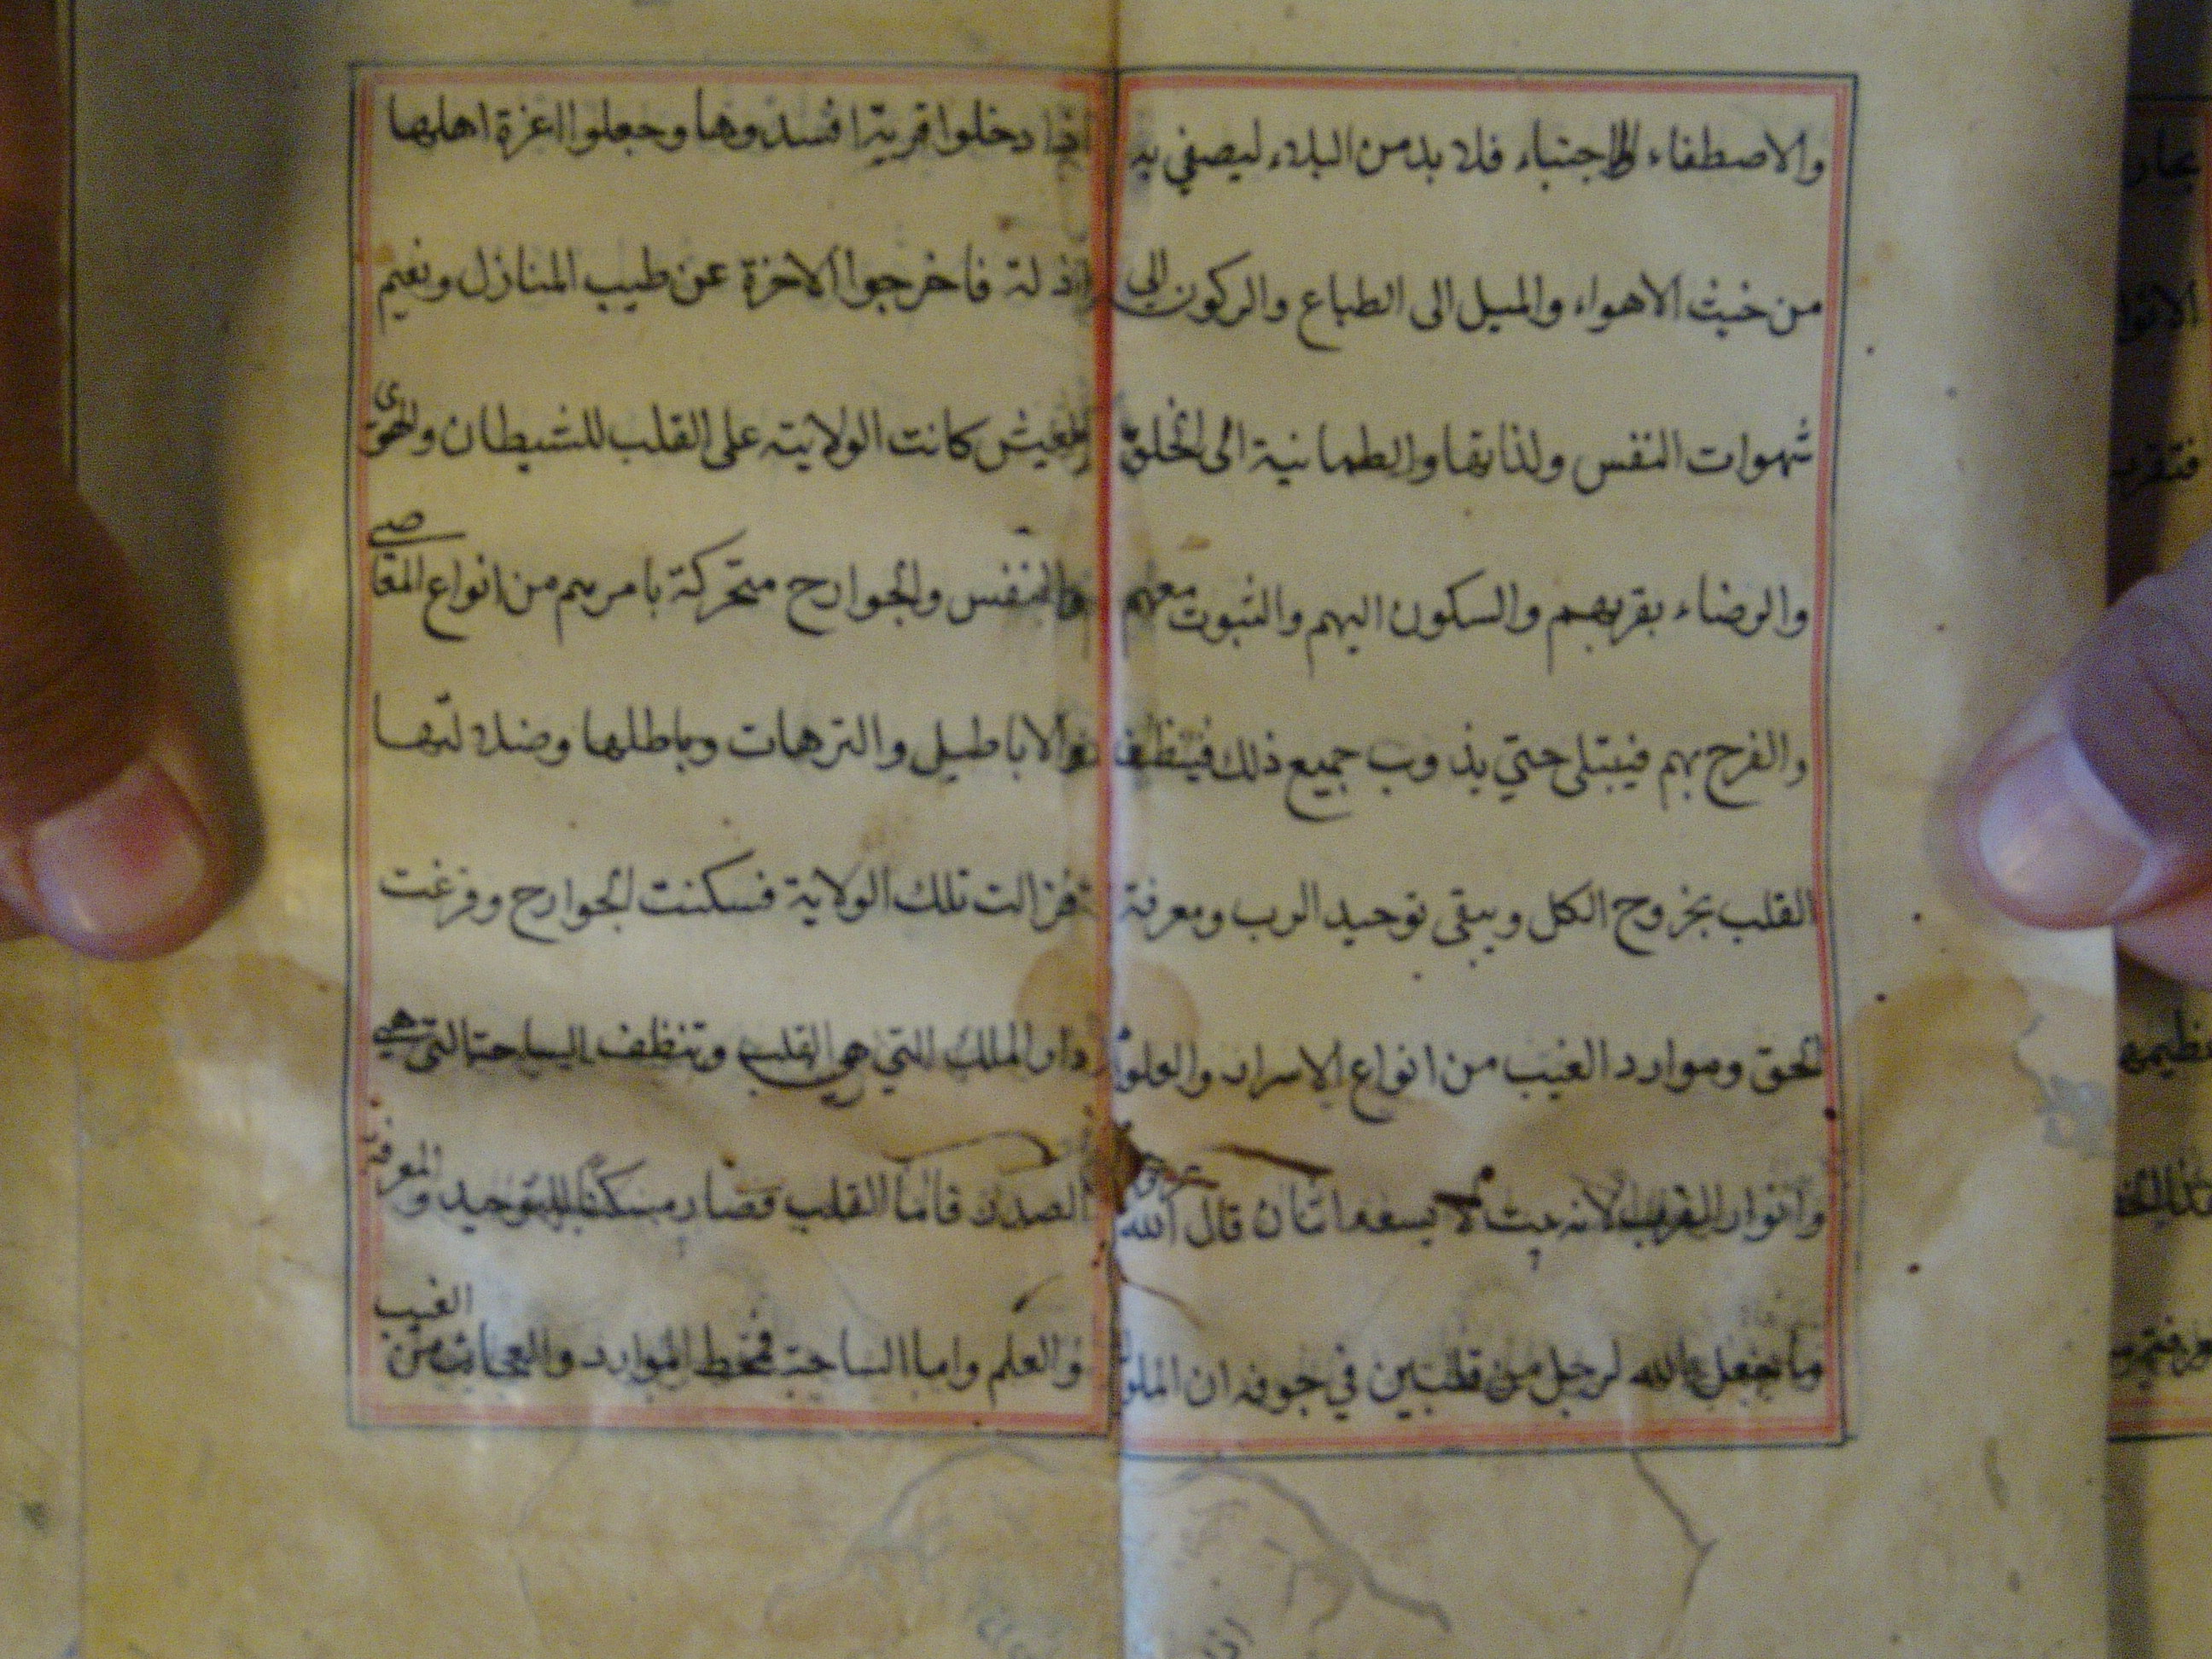 والاصطفاء والاجتباء فلا بد من البلاء ليصفي به
من خبث الاهواء والميل الى الطباع والركون الى
شهوات النفس ولذاتها والطمانية الى الخلق
والرضاء بقربهم والسكون اليهم والثبوت معهم
والفرح بهم فيبتلى حتي يذوب جميع ذلك فيتنظف
القلب بخروج الكل ويبقى توحيد الرب ومعرفة
الحق وموارد الغيب من انواع الاسرار والعلوم
وانوار القرب لانه بيت لا يسعه اثنان قال الله
ما جعل الله لرجل من قلبين في جوفه ان الملوك
اذا دخلوا قرية افسدوها وجعلوا اعزة اهلها
اذلة فاخرجوا الاخزة عن طيب المنازل ونعيم
العيش كانت الولاية على القلب للشيطان والهوى
والنفس والجوارح متحركة بامرهم من انواع المعاصي
والاباطيل والترهات وباطلها وضلالتها
فزالت تلك الولاية فسكنت الجوارح وفرغت
دار الملك التي هي القلب وتنظف الساحة التي هي
الصدر فاما القلب فصار مسكنا للتوحيد والمعرفة
والعلم واما الساحة فمحط الموارد والعجائب من الغيب